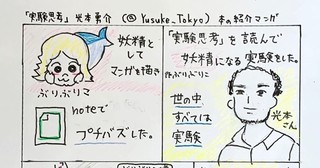 「実験思考」光本勇介 (@Yusuke_Tokyo) 本の紹介マンガ
妖精として
マンガを描き
ぶりぶりこ
noteで
プチバズした。
「実験思考」を読んで
妖精になる実験をした。
byぶりぶりこ
世の中
すべては
実験
光本
さん